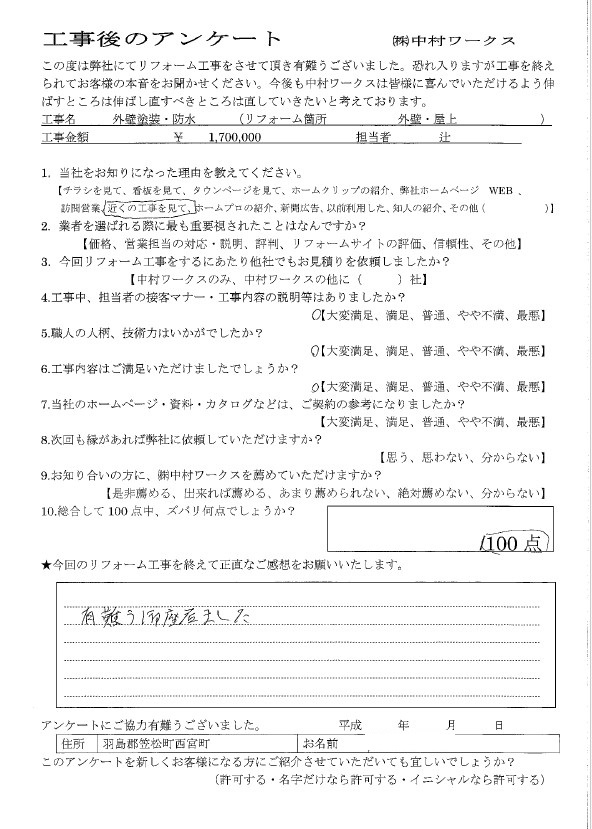 工事後のアンケート　㈱中村ワークス
この度は弊社にてリフォーム工事をさせて頂き有難うございました。恐れ入りますが工事を終え
られてお客様の本音をお聞かせください。今後も中村ワークスは皆様に喜んでいただけるよう伸
ばすところは伸ばし直すべきところは直していきたいと考えております。
工事名　外壁塗装・防水　（リフォーム箇所　外壁・屋上　）
工事金額　￥　1,700,000　担当者　辻
1. 当社をお知りになった理由を教えてください。
【チラシを見て、看板を見て、タウンページを見て、ホームクリップの紹介、弊社ホームページ　WEB 、
訪問営業、近くの工事を見て、ホームプロの紹介、新聞広告、以前利用した、知人の紹介、その他（　　）】
2. 業者を選ばれる際に最も重要視されたことはなんですか？
【価格、営業担当の対応・説明、評判、リフォームサイトの評価、信頼性、その他】
3. 今回リフォーム工事をするにあたり他社でもお見積りを依頼しましたか？
【中村ワークスのみ、中村ワークスの他に（　　）社】
4.工事中、担当者の接客マナー・工事内容の説明等はありましたか？
【大変満足、満足、普通、やや不満、最悪】
5.職人の人柄、技術力はいかがでしたか？
【大変満足、満足、普通、やや不満、最悪】
6.工事内容はご満足いただけましたでしょうか？
【大変満足、満足、普通、やや不満、最悪】
7.当社のホームページ・資料・カタログなどは、ご契約の参考になりましたか？
【大変満足、満足、普通、やや不満、最悪】
8.次回も縁があれば弊社に依頼していただけますか？
【思う、思わない、分からない】
9.お知り合いの方に、㈱中村ワークスを薦めていただけますか？
【是非薦める、出来れば薦める、あまり薦められない、絶対薦めない、分からない】
10.総合して 100 点中、ズバリ何点でしょうか？
100 点
★今回のリフォーム工事を終えて正直なご感想をお願いいたします。
有難う御座居ました
アンケートにご協力有難うございました。　平成　年　月　日
住所　羽島郡笠松町西宮町　お名前
このアンケートを新しくお客様になる方にご紹介させていただいても宜しいでしょうか？
（許可する・名字だけなら許可する・イニシャルなら許可する）